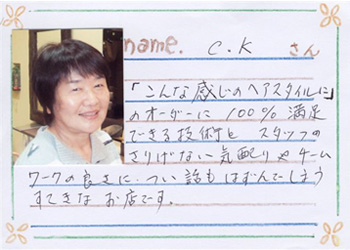 name. C.K さん
「こんな感じのヘアスタイルに」
のオーダーに 100% 満足
できる技術と スタッフの
さりげない 気配りやチーム
ワークの良さに、つい話もはずんでしまう
すてきな お店です。